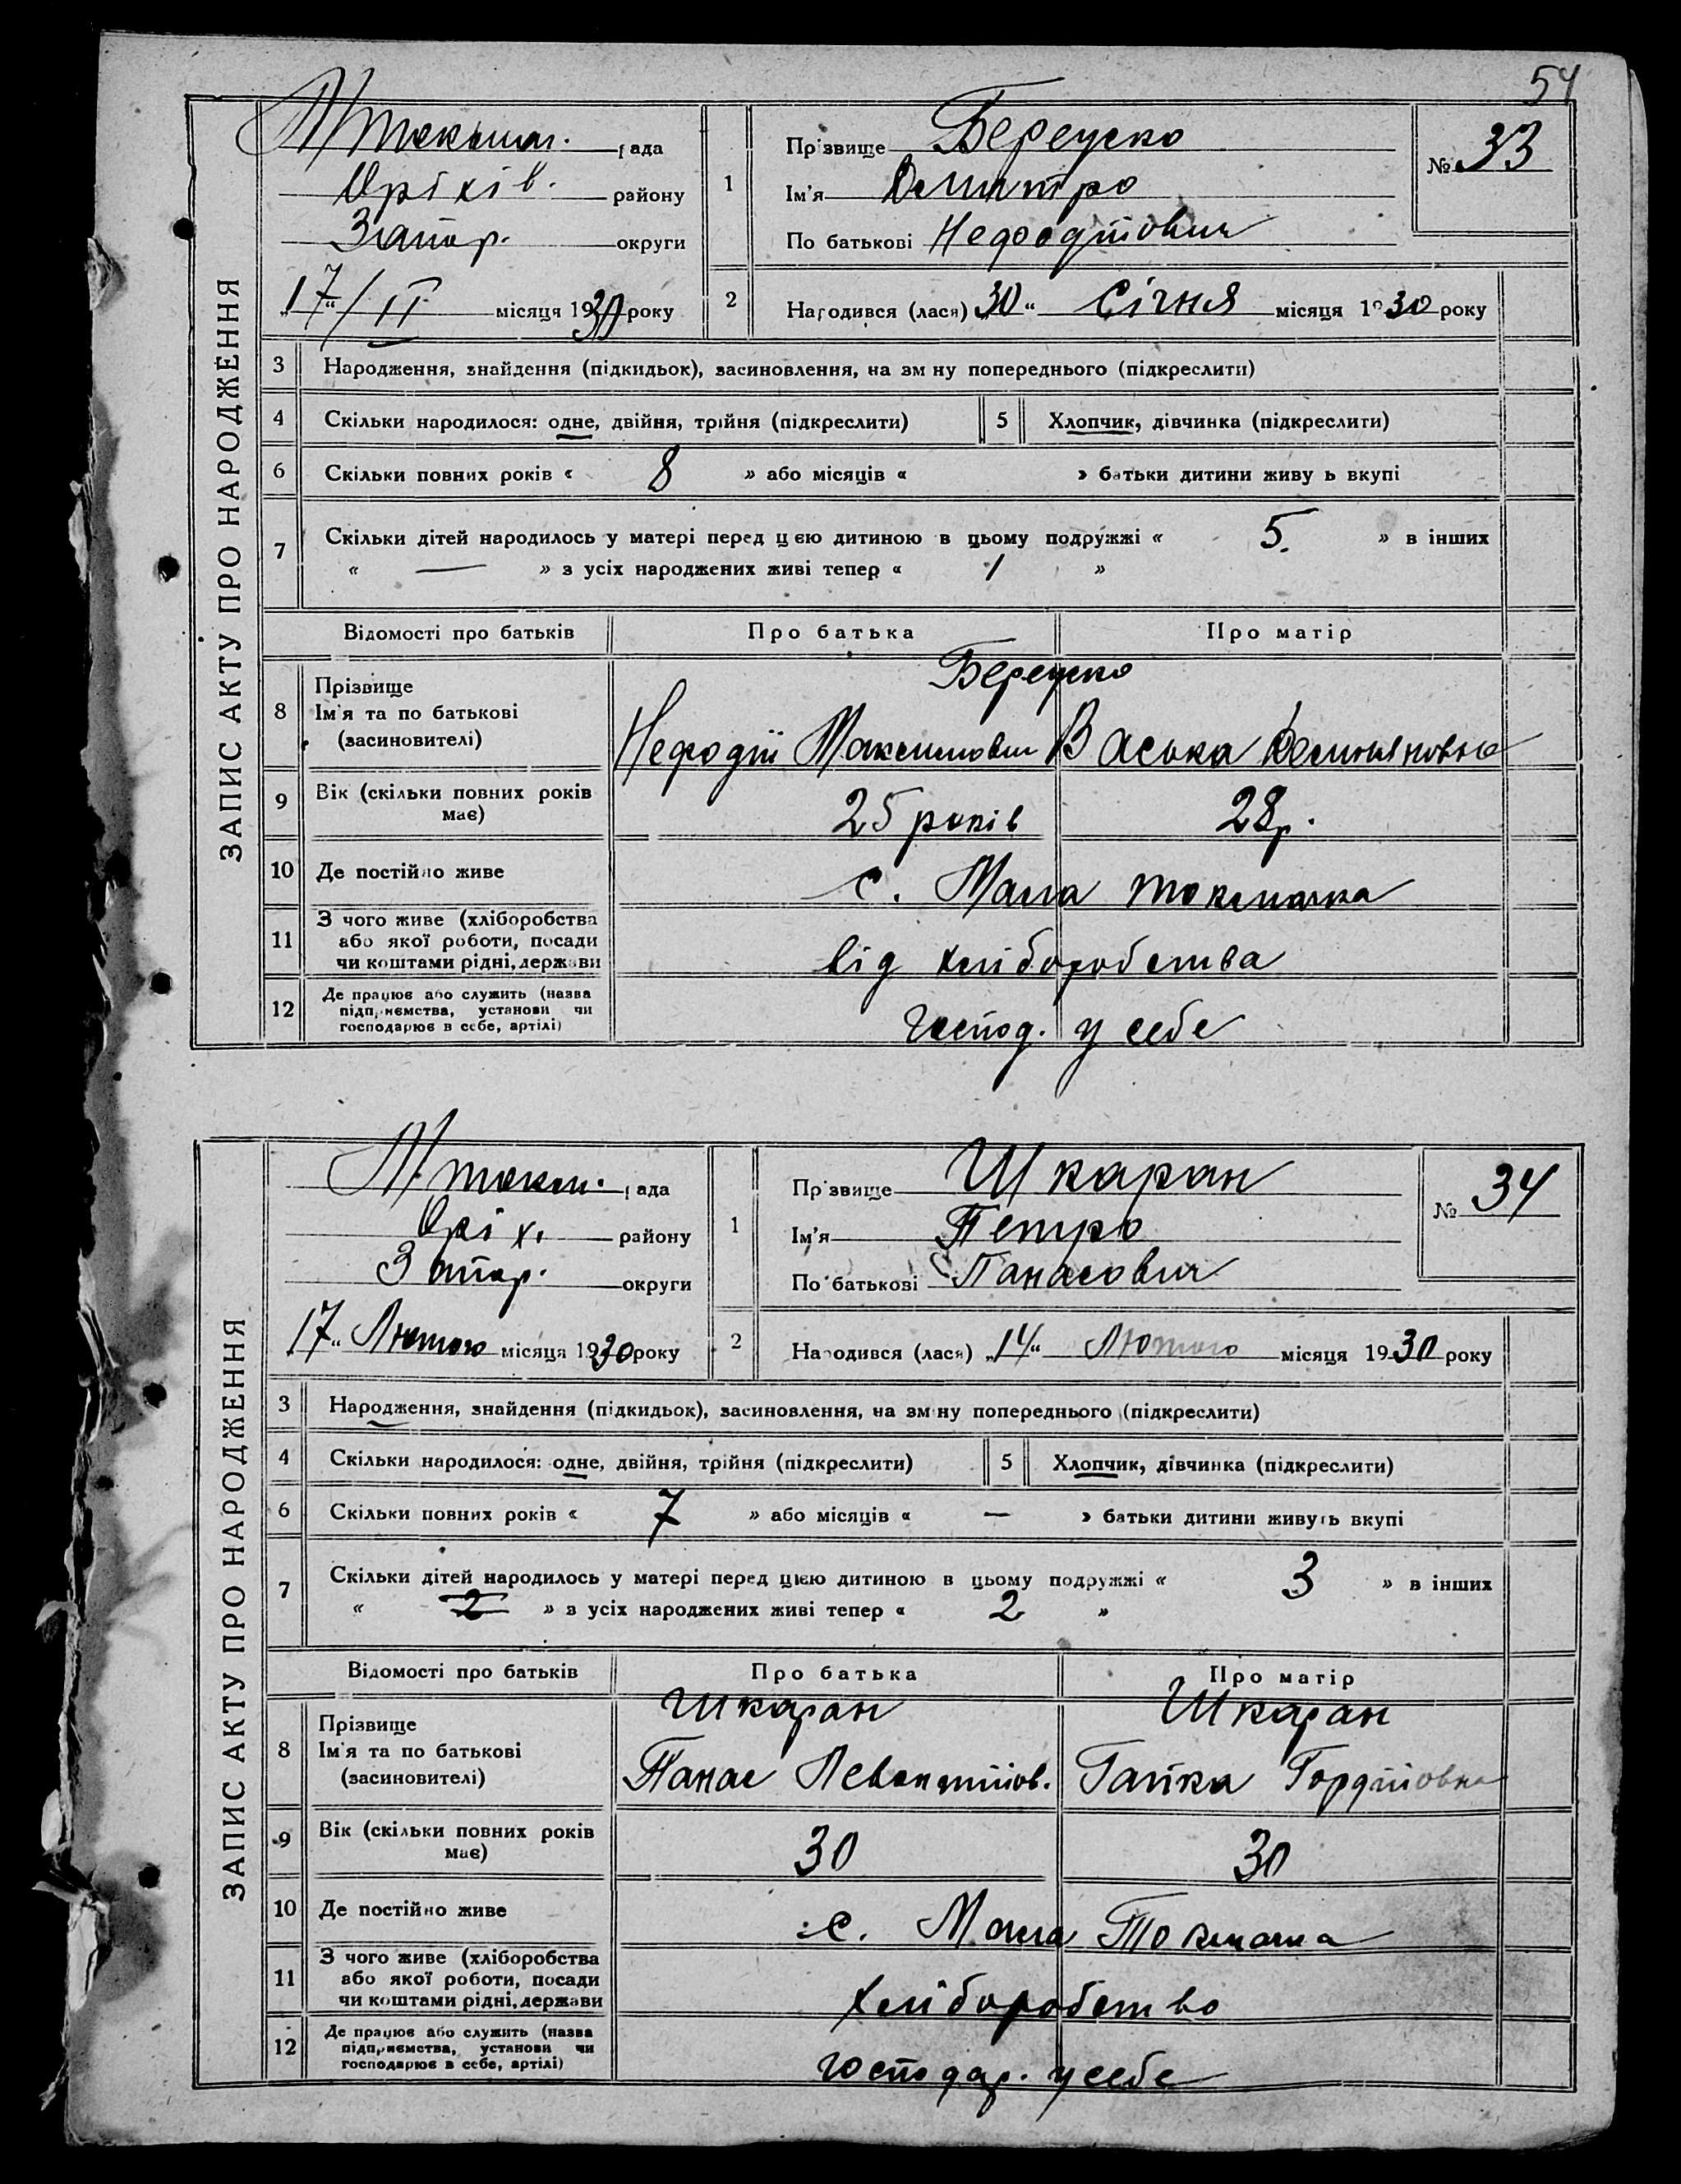 54
ЗАПИС АКТУ ПРО НАРОДЖЕННЯ
М/токмач. рада
Оріхів. району
Запор. округи
„17“/II місяця 1930 року
1
Прізвище Берецко
Ім'я Дмитро
По батькові Нефодійович
№ 33
2
Народився (лася) „30“ Січня місяця 1930 року
3 Народження, знайдення (підкидьок), засиновлення, на зміну попереднього (підкреслити)
4 Скільки народилося: одне, двійня, трійня (підкреслити)
5 Хлопчик, дівчинка (підкреслити)
6 Скільки повних років « 8 » або місяців « » батьки дитини живуть вкупі
7 Скільки дітей народилось у матері перед цією дитиною в цьому подружжі « 5. » в інших
« — » з усіх народжених живі тепер « 1 »
Відомості про батьків
Про батька
Про матір
8 Прізвище
Ім'я та по батькові
(засиновителі)
Берецко
Нефодій Максимович
Васька Демьяновна
9 Вік (скільки повних років
має)
25 років
28 р.
10 Де постійно живе
с. Мала Токмачка
11 З чого живе (хліборобства
або якої роботи, посади
чи коштами рідні, держави
від хліборобства
12 Де працює або служить (назва
підприємства, установи чи
господарює в себе, артілі)
господ. у себе
ЗАПИС АКТУ ПРО НАРОДЖЕННЯ
М. токм. рада
Оріх. району
Запор. округи
„17“ Лютого місяця 1930 року
1
Прізвище Шкаран
Ім'я Петро
По батькові Панасович
№ 34
2
Народився (лася) „14“ Лютого місяця 1930 року
3 Народження, знайдення (підкидьок), засиновлення, на зміну попереднього (підкреслити)
4 Скільки народилося: одне, двійня, трійня (підкреслити)
5 Хлопчик, дівчинка (підкреслити)
6 Скільки повних років « 7 » або місяців « — » батьки дитини живуть вкупі
7 Скільки дітей народилось у матері перед цією дитиною в цьому подружжі « 3 » в інших
« 2 » з усіх народжених живі тепер « 2 »
Відомості про батьків
Про батька
Про матір
8 Прізвище
Ім'я та по батькові
(засиновителі)
Шкаран
Панас Левонтійов.
Шкаран
Гапка Гордійовна
9 Вік (скільки повних років
має)
30
30
10 Де постійно живе
с. Мала Токмачка
11 З чого живе (хліборобства
або якої роботи, посади
чи коштами рідні, держави
хліборобство
12 Де працює або служить (назва
підприємства, установи чи
господарює в себе, артілі)
господар. у себе